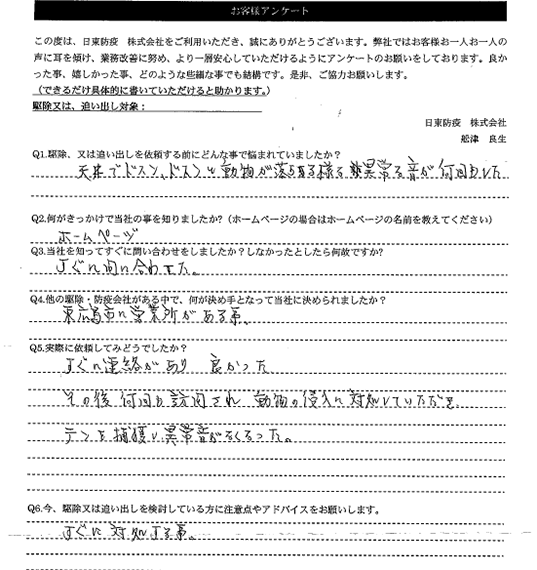 お客様アンケート
この度は、日東防疫 株式会社をご利用いただき、誠にありがとうございます。弊社ではお客様お一人お一人の
声に耳を傾け、業務改善に努め、より一層安心していただけるようにアンケートのお願いをしております。良か
った事、嬉しかった事、どのような些細な事でも結構です。是非、ご協力お願いします。
（できるだけ具体的に書いていただけると助かります。）
駆除又は、追い出し対象：
日東防疫 株式会社
舩津 良生
Q1.駆除、又は追い出しを依頼する前にどんな事で悩まれていましたか？
天井でドスン、ドスンと動物が落ちる様な異常な音が何回もした
Q2.何がきっかけで当社の事を知りましたか?（ホームページの場合はホームページの名前を教えてください）
ホームページ
Q3.当社を知ってすぐに問い合わせをしましたか？しなかったとしたら何故ですか？
すぐに問い合わせた。
Q4.他の駆除・防疫会社がある中で、何が決め手となって当社に決められましたか？
東広島市に営業所がある事。
Q5.実際に依頼してみどうでしたか？
すぐに連絡があり 良かった
その後何回も訪問され 動物の侵入に対処していただき、
テンを捕獲し異常音がなくなった。
Q6.今、駆除又は追い出しを検討している方に注意点やアドバイスをお願いします。
すぐに対処する事。